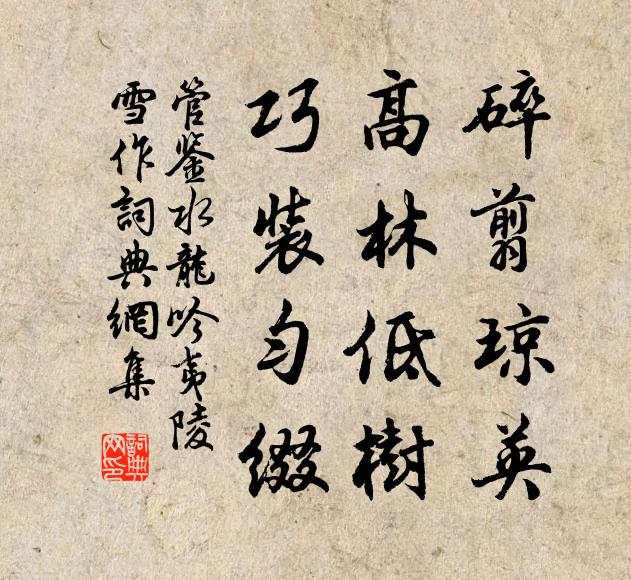 碎翦琼英
高林低樹
巧裝勻綴
管鉴水龍吟夷陵
雪作詞典網集
詞典
网印